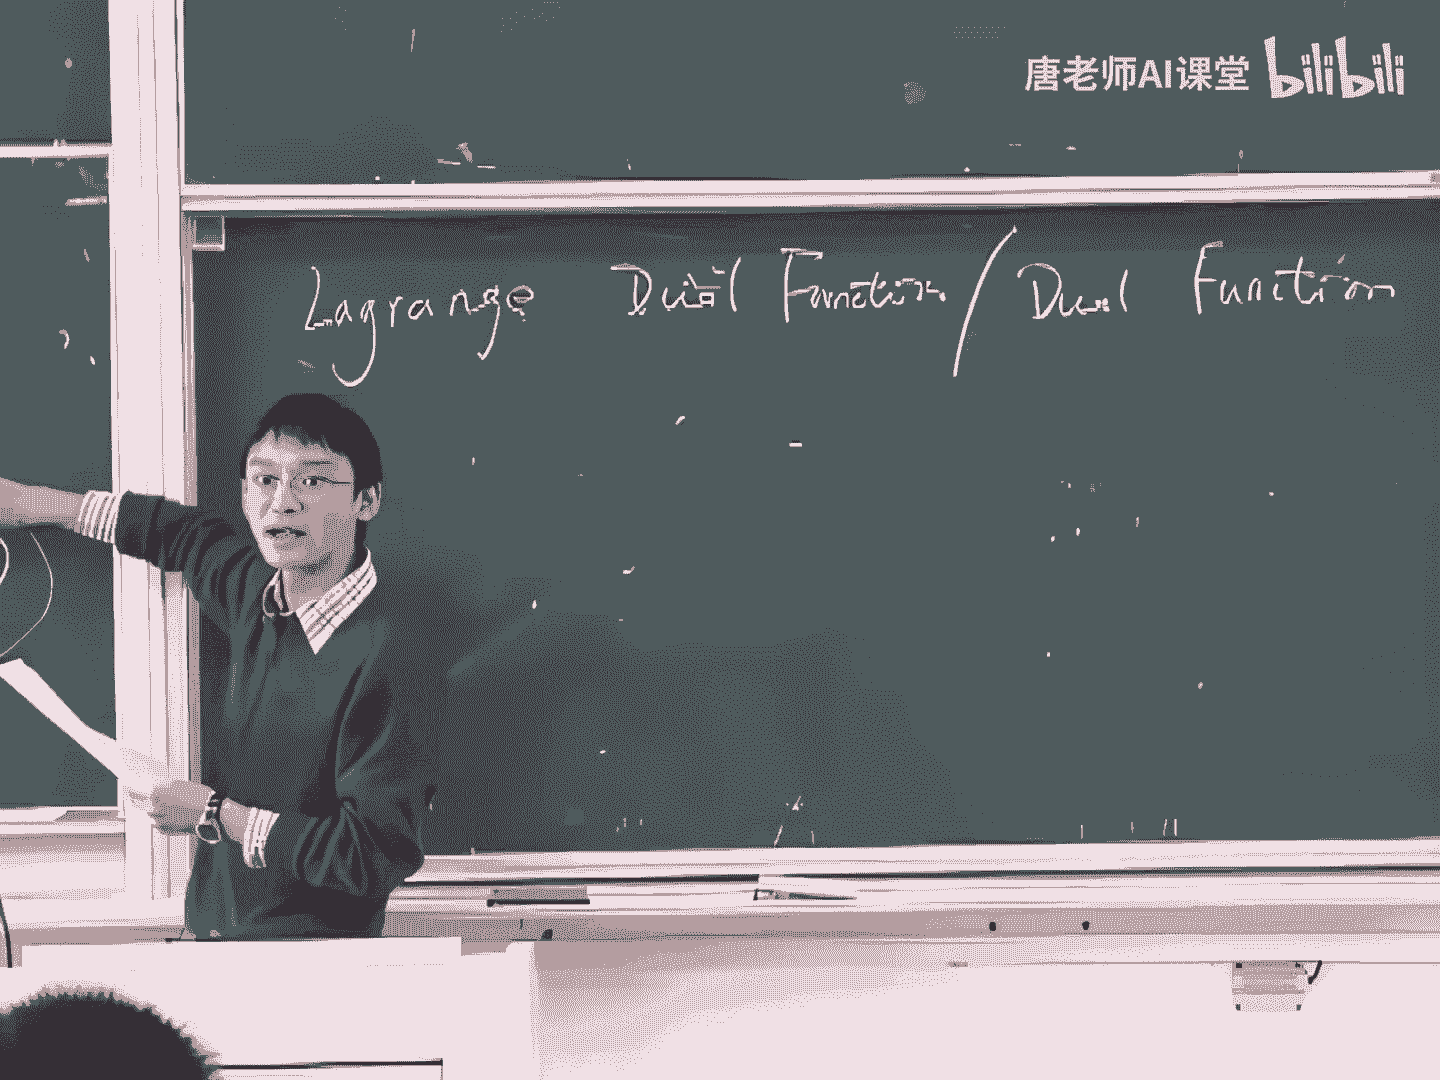 唐老师AI课堂 bilibili
Lagrange Dual Function / Dual Function